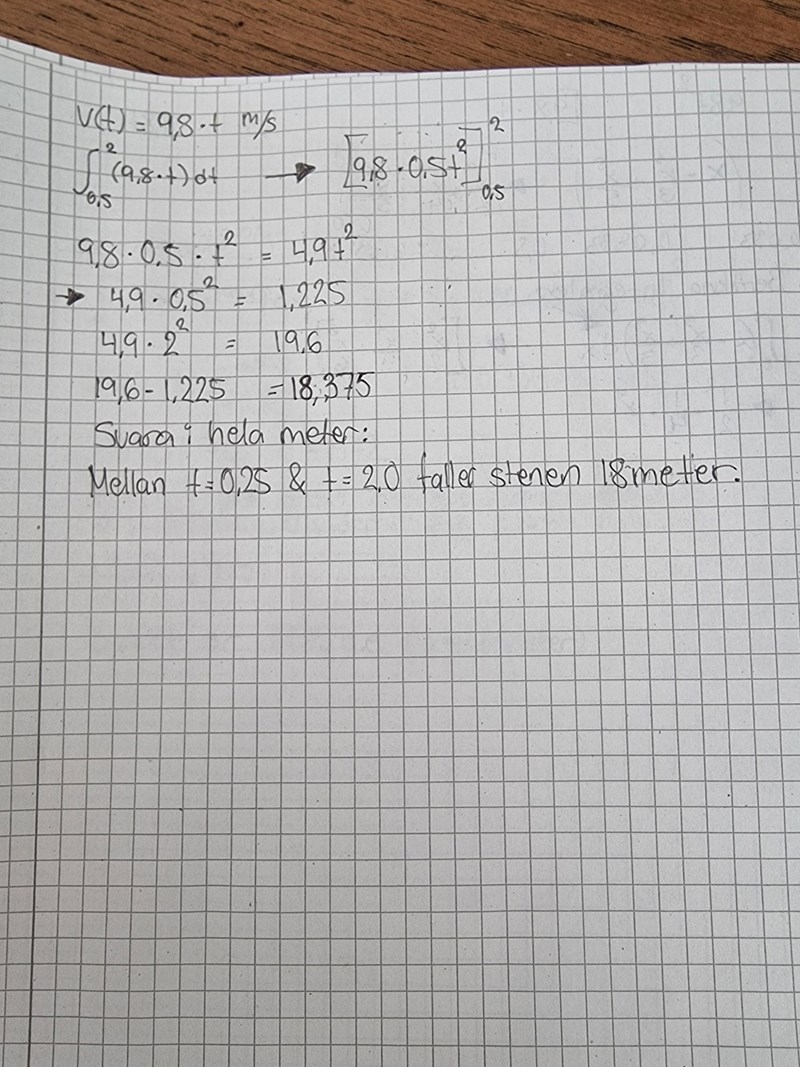 V(t) = 9,8 · t m/s
∫₀,₅² (9,8 · t) dt → [9,8 · 0,5t²]₀,₅²
9,8 · 0,5 · t² = 4,9t²
→ 4,9 · 0,5² = 1,225
4,9 · 2² = 19,6
19,6 - 1,225 = 18,375
Svara i hela meter:
Mellan t=0,25 & t=2,0 faller stenen 18meter.